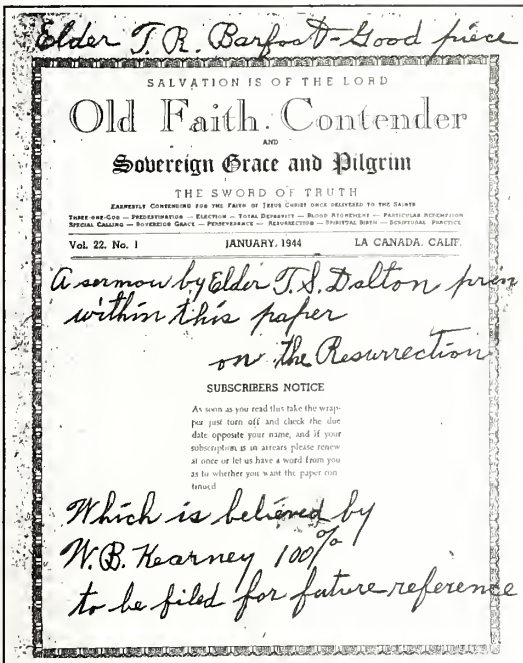 Elder T. R. Barfoot - Good piece
SALVATION IS OF THE LORD
Old Faith Contender
AND
Sovereign Grace and Pilgrim
THE SWORD OF TRUTH
EARNESTLY CONTENDING FOR THE FAITH OF JESUS CHRIST ONCE DELIVERED TO THE SAINTS
THREE-ONE-GOD — PREDESTINATION — ELECTION — TOTAL DEPRAVITY — BLOOD ATONEMENT — PARTICULAR REDEMPTION
SPECIAL CALLING — SOVEREIGN GRACE — PERSEVERANCE — RESURRECTION — SPIRITUAL BIRTH — SCRIPTURAL PRACTICE
Vol. 22. No. 1 JANUARY, 1944 LA CANADA, CALIF.
A sermon by Elder T. S. Dalton prin
within this paper
on the Resurrection
SUBSCRIBERS NOTICE
As soon as you read this take the wrap-
per just torn off and check the due
date opposite your name, and if your
subscription is in arrears please renew
at once or let us have a word from you
as to whether you want the paper con-
tinued
Which is believed by
W. B. Kearney 100%
to be filed for future reference